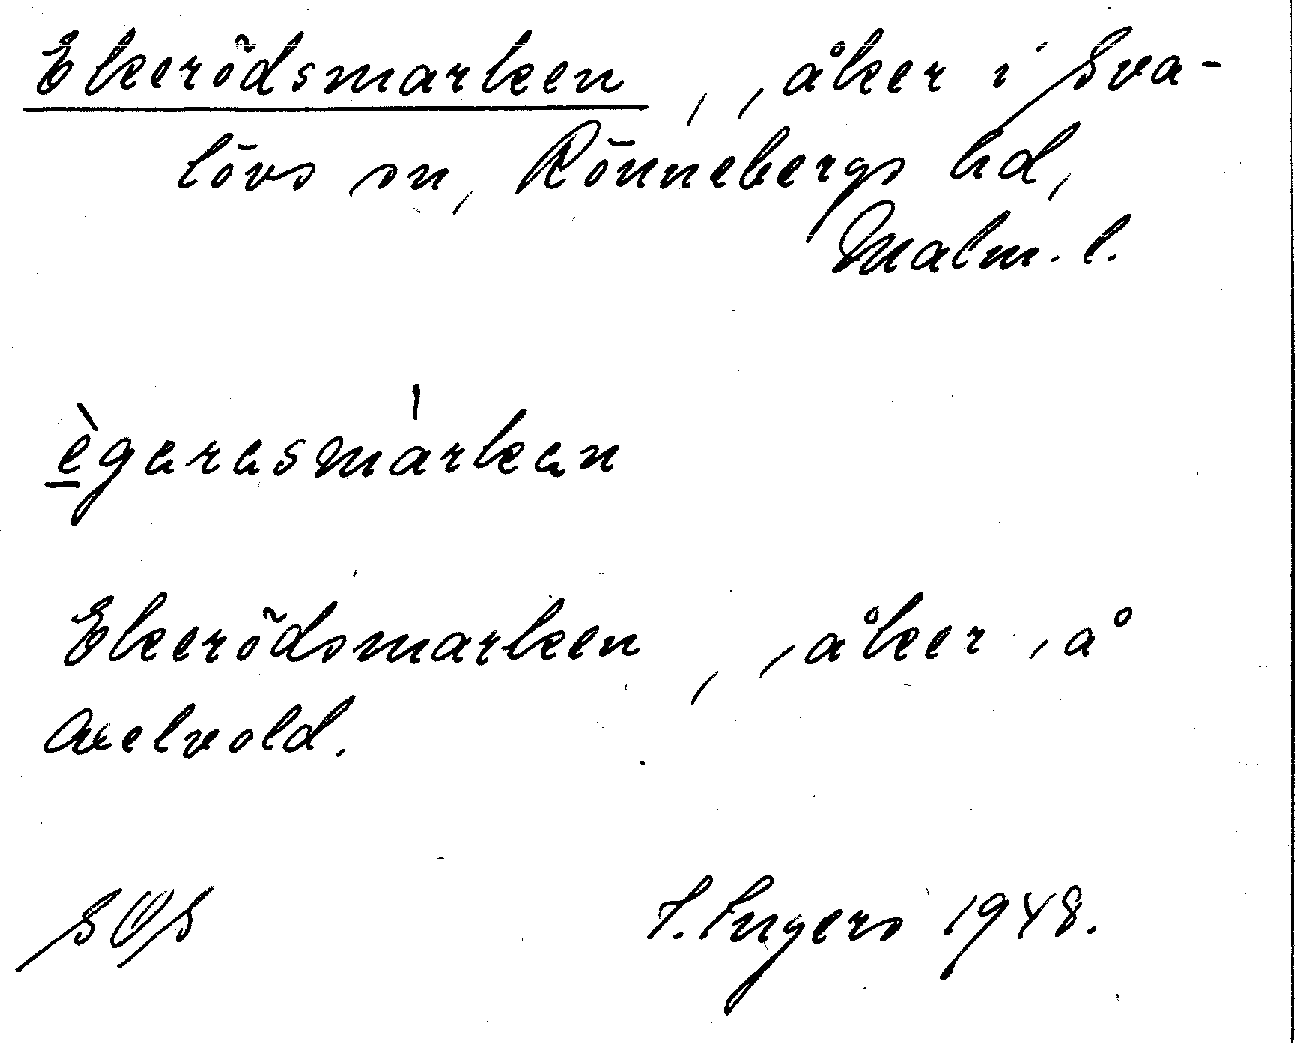 Ekerödsmarken, , åker i Sva-
lövs sn, Rönnebergs hd,
Malm. l.
ègarasmárkan
Ekerödsmarken, , åker , å
Axelvold.
SOS I. Ingers 1948.